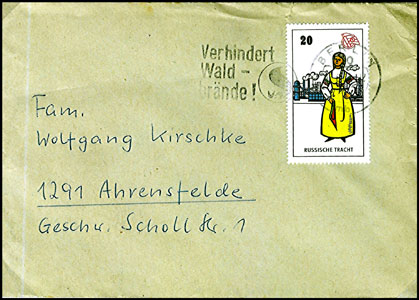 Verhindert
Wald -
brände!
BERLIN
20
RUSSISCHE TRACHT
Fam.
Wolfgang Kirschke
1291 Ahrensfelde
Geschw. Scholl Str. 1